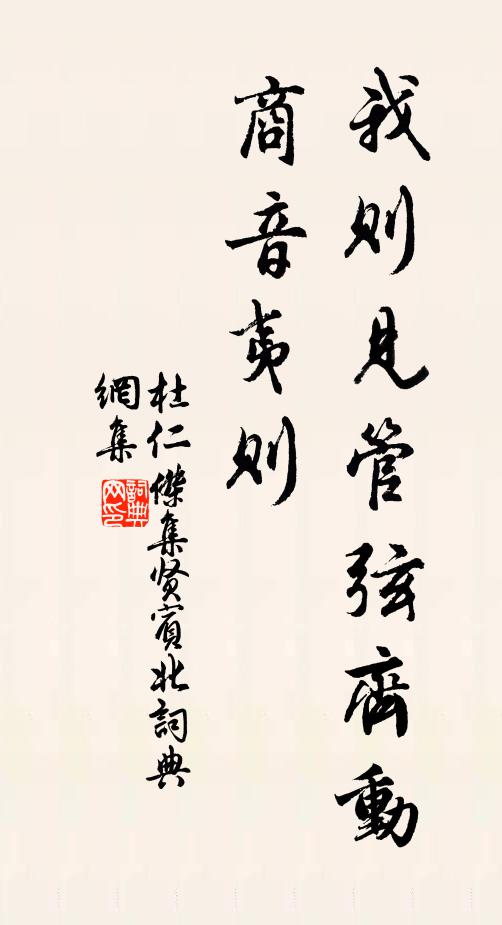 我則見管弦齊動
商音夷則
杜仁傑集贤賓北詞典
網集
詞典網印